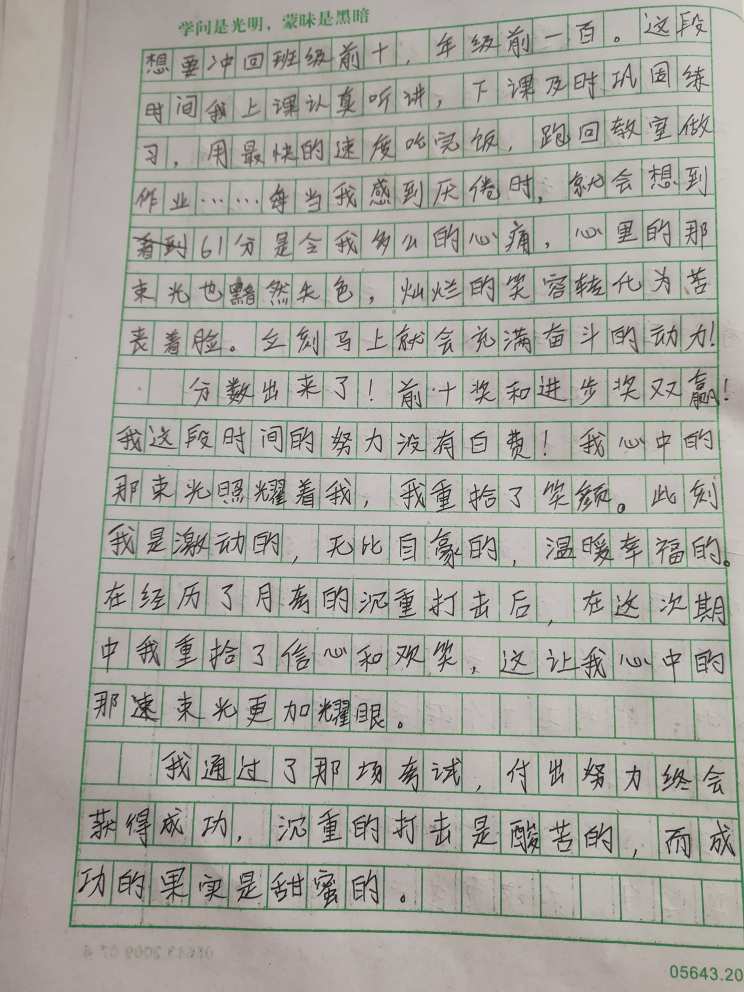 学问是光明，蒙昧是黑暗
想要冲回班级前十，年级前一百。这段
时间我上课认真听讲，下课及时巩固练
习，用最快的速度吃完饭，跑回教室做
作业……每当我感到厌倦时，就会想到
看到61分是令我多么的心痛，心里的那
束光也黯然失色，灿烂的笑容转化为苦
丧着脸。立刻马上就会充满奋斗的动力！
分数出来了！前十奖和进步奖双赢！
我这段时间的努力没有白费！我心中的
那束光照耀着我，我重拾了笑颜。此刻
我是激动的，无比自豪的，温暖幸福的。
在经历了月考的沉重打击后，在这次期
中我重拾了信心和欢笑，这让我心中的
那束光更加耀眼。
我通过了那场考试，付出努力终会
获得成功，沉重的打击是酸苦的，而成
功的果实是甜蜜的。
05643.20